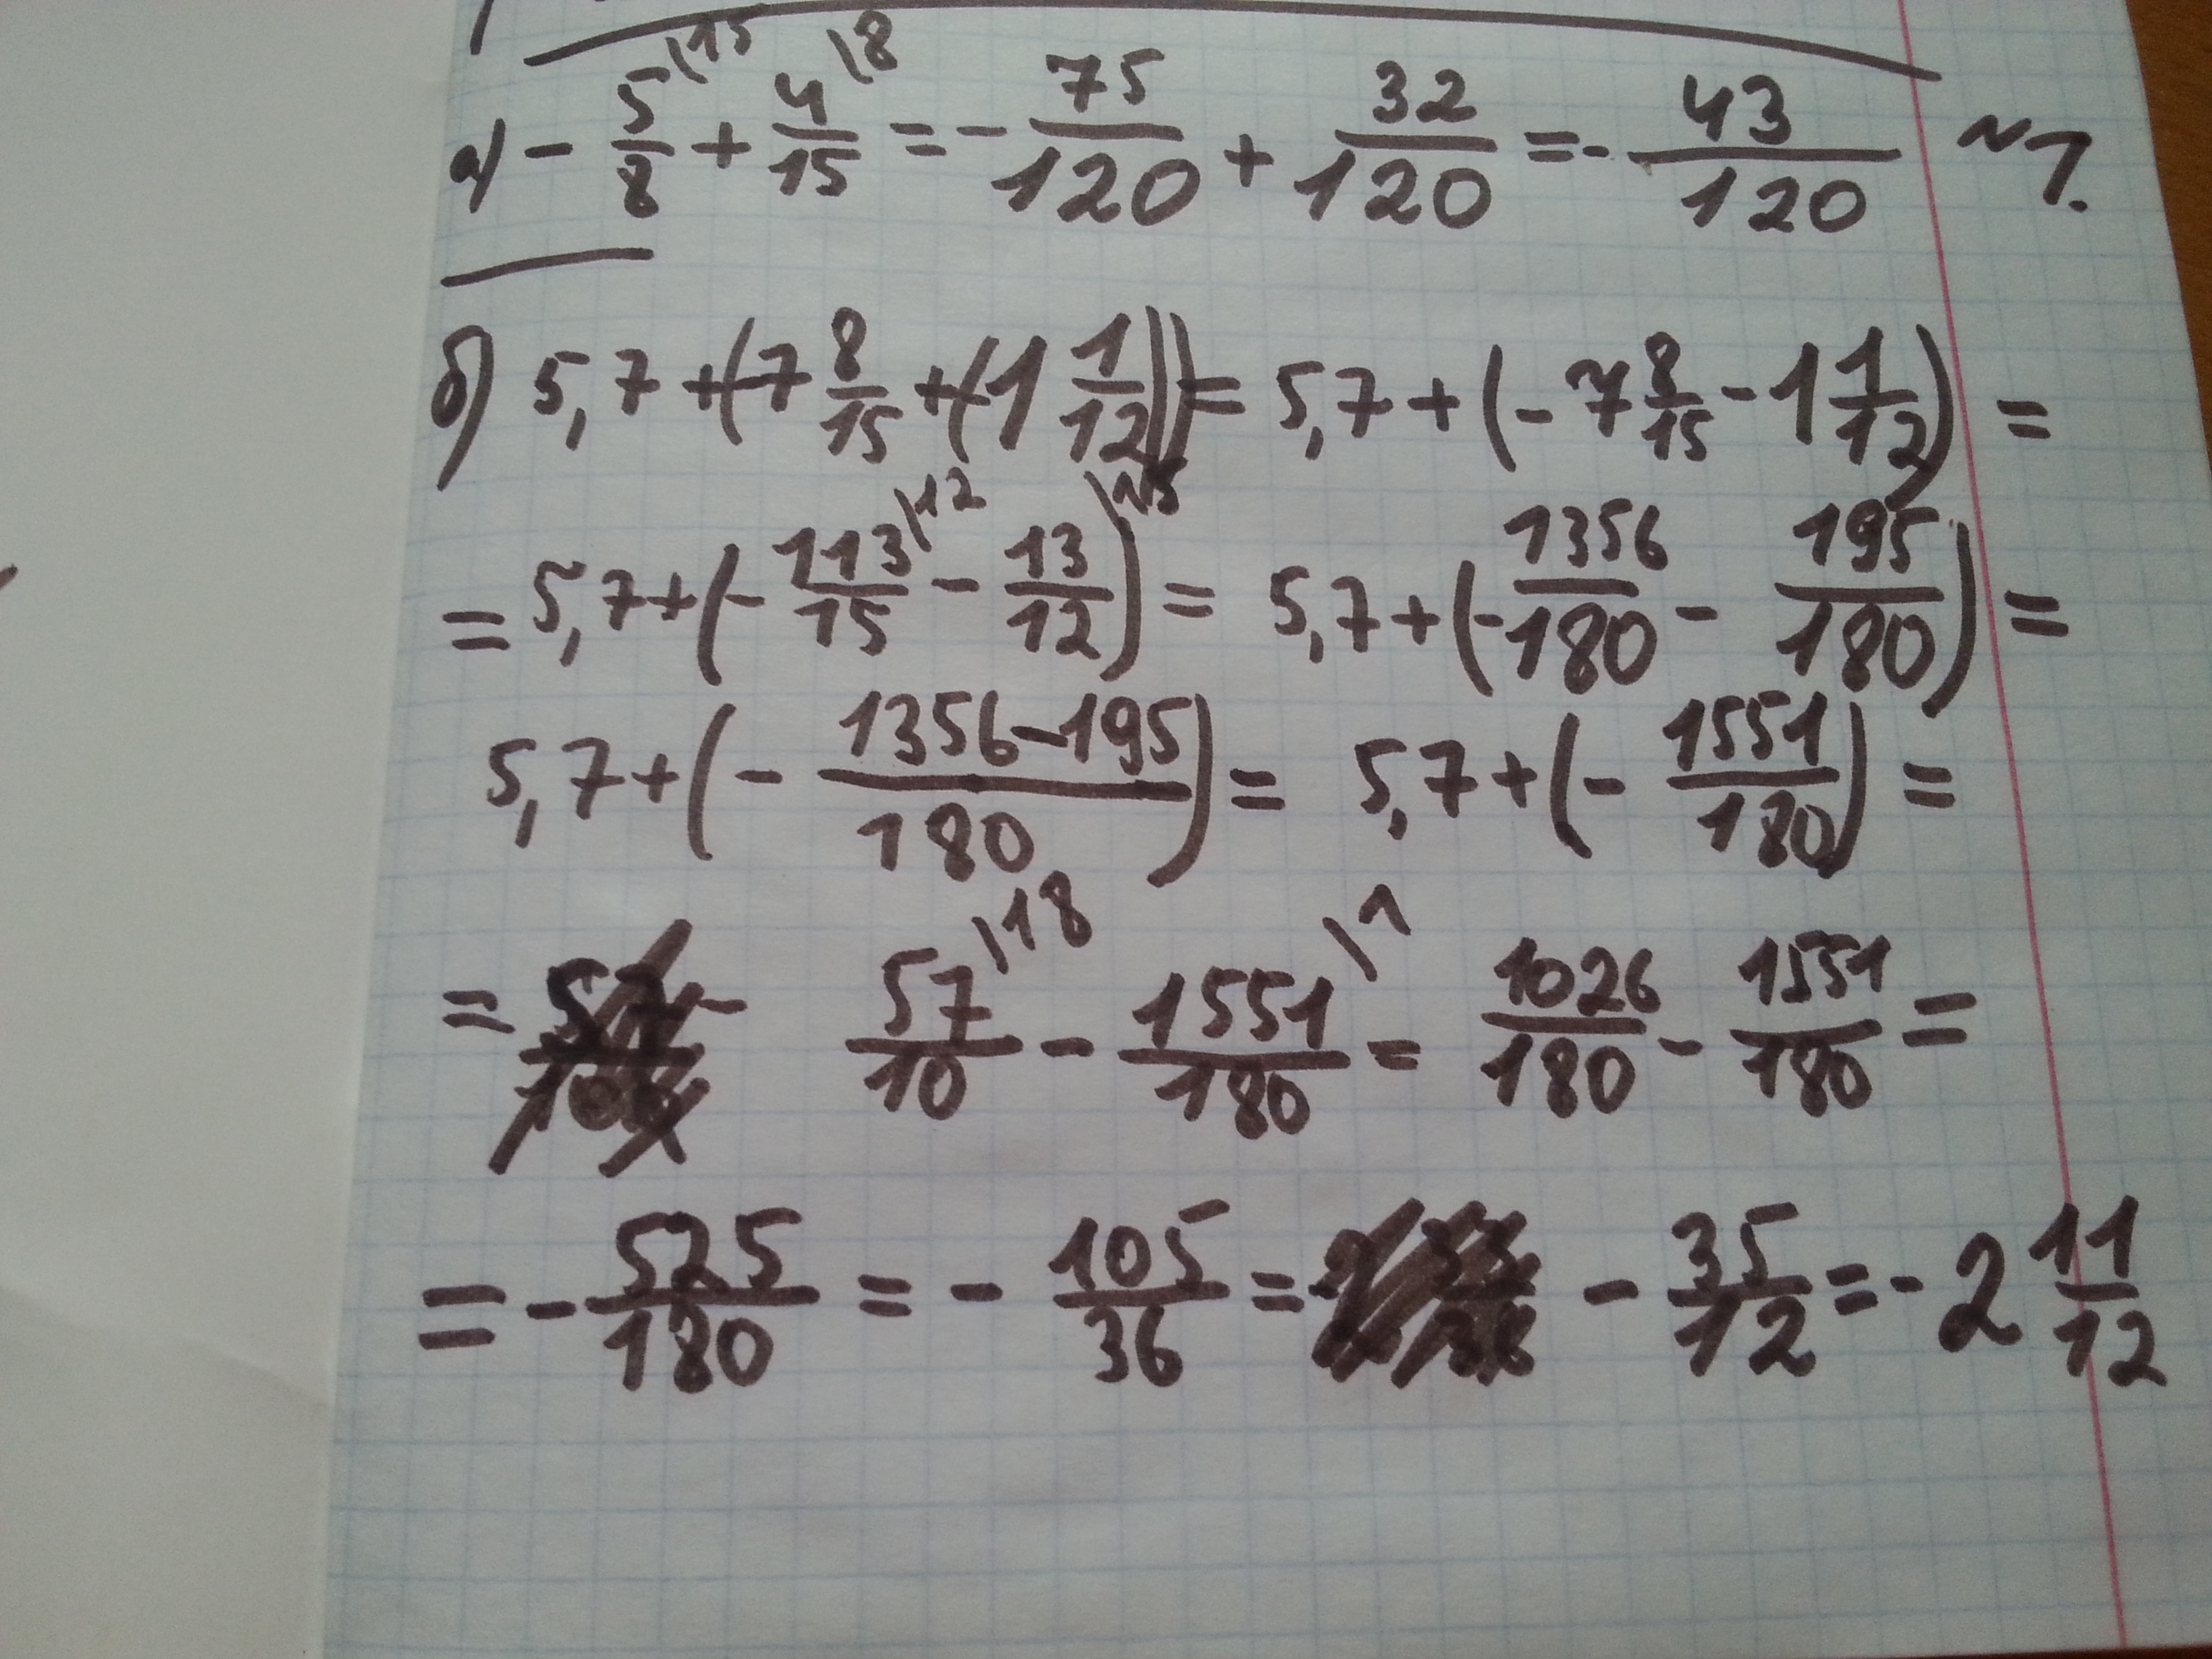 а) - 5/8 \15 + 4/15 \8 = - 75/120 + 32/120 = - 43/120 ~1.
б) 5,7 + (-7 8/15 + (-1 1/12)) = 5,7 + (-7 8/15 - 1 1/12) =
= 5,7 + (- 113/15 \12 - 13/12) \15 = 5,7 + (- 1356/180 - 195/180) =
5,7 + (- 1356-195/180) = 5,7 + (- 1551/180) =
= - 57/10 \18 - 1551/180 \1 = 1026/180 - 1551/180 =
= - 525/180 = - 105/36 = - 35/12 = - 2 11/12